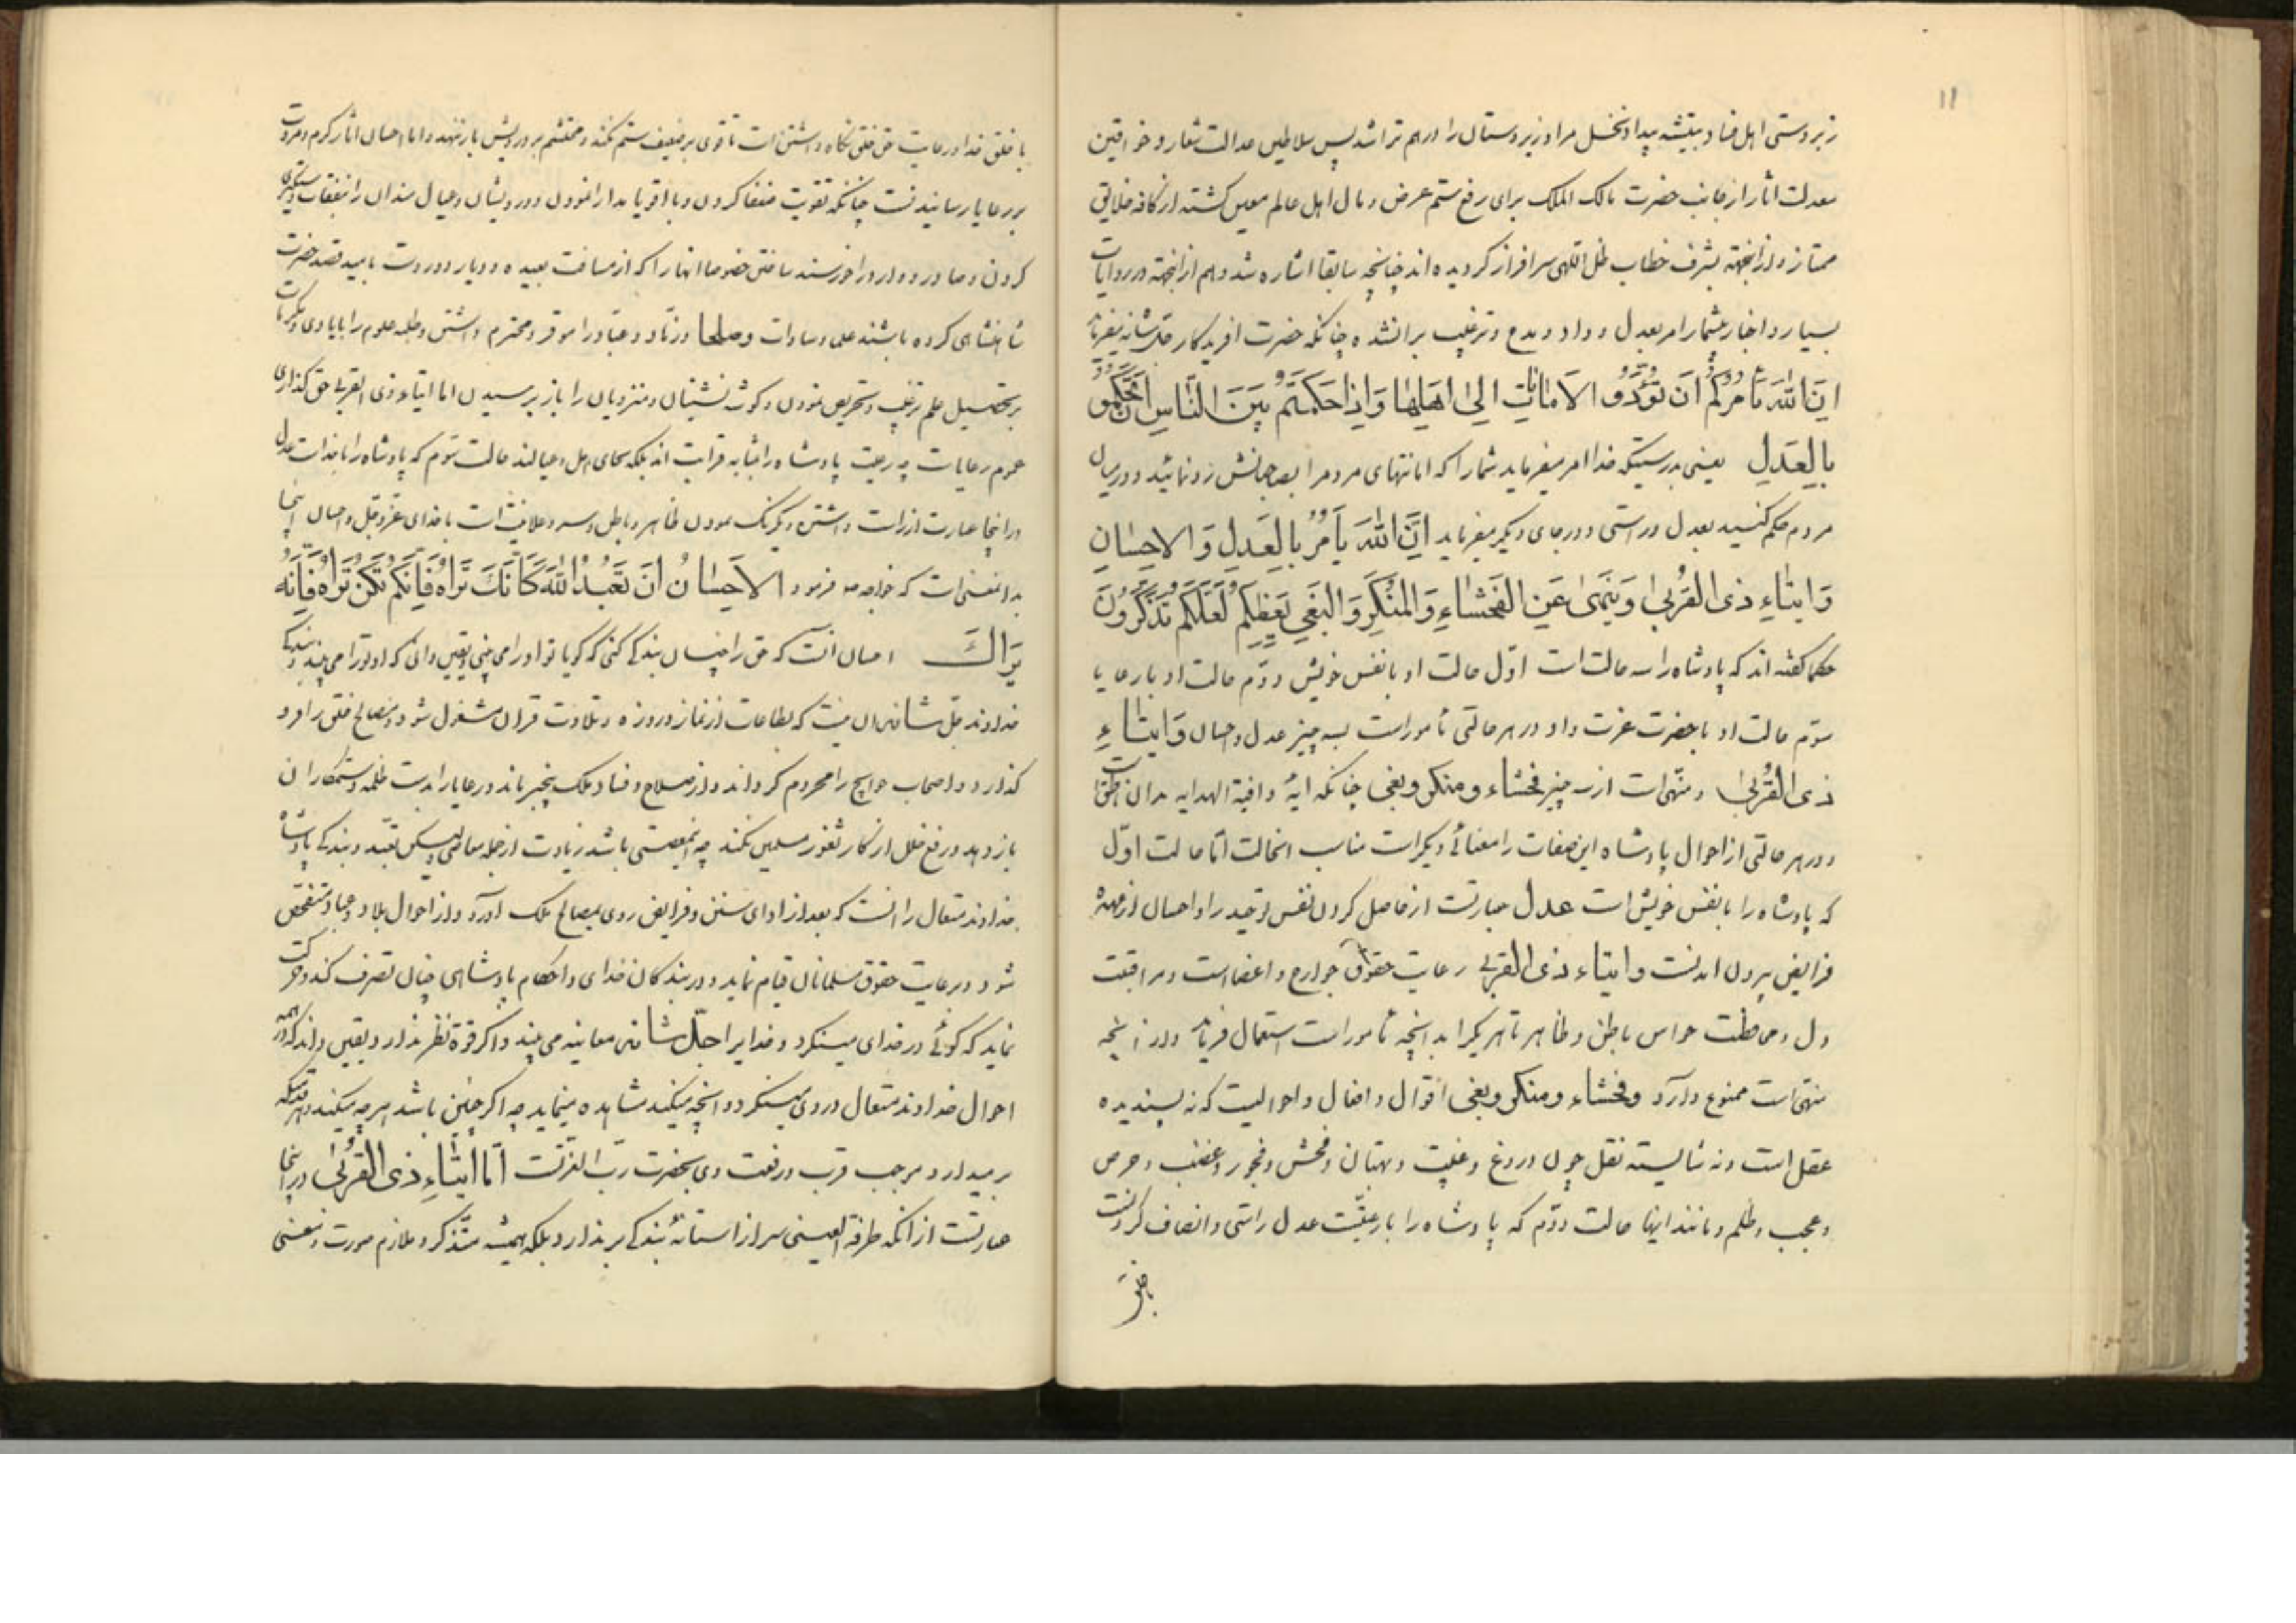 ۱۱
زبردستی اهل فساد و تیشه بیداد نخل مراد زیردستان را درهم تراشد پس سلاطین عدالت شعار و خواقین
معدلت اثار از جانب حضرت مالک الملک برای رفع ستم عرض و مال اهل عالم معین کشته از کافه خلایق
ممتاز و ازینجهة بشرف خطاب ظل اللهی سرافراز کردیده اند چنانچه سابقا اشاره شد و هم ازینجهة در روایات
بسیار و اخبار بیشمار امر بعدل و داد و مدح و ترغیب بران شده چنانکه حضرت افریدکار جل شانه میفرماید
اِنَّ اللهَ یَأمُرُکُم اَن تُؤَدُّو الاَمانات اِلی اَهلِها وَاِذا حَکَمتُم بَینَ النَّاسِ اَن تَحکُمو
بِالعَدلِ یعنی بدرستیکه خدا امر میفرماید شما را که امانتهای مردم را بصاحبانش رد نمائید و در میان
مردم حکم کنید بعدل و راستی و در جای دیکر میفرماید اِنَّ اللهَ یَأمُرُ بِالعَدلِ وَالاِحسانِ
وَایتاءِ ذی القُربی وَیَنهی عَنِ الفَحشاءِ وَالمُنکَرِ وَالبَغیِ یَعِظُکُم لَعَلَّکُم تَذَکَّرُونَ
حکما کفته اند که پادشاه را سه حالت است اوّل حالت او با نفس خویش دوّم حالت او با رعایا
سوّم حالت او با حضرت عزت و او در هر حالتی مأمور است بسه چیز عدل و احسان وَایتاءِ
ذی القُربی و منهی است از سه چیز فحشاء و منکر و بغی چنانکه ایهٔ وافیة الهدایه بدان ناطق است
و در هر حالتی از احوال پادشاه این صفات را معنائی دیکر است مناسب انحالت امّا حالت اوّل
که پادشاه را با نفس خویش است عدل عبارتست از حاصل کردن نفس توحید را و احسان از عهدهٔ
فرایض بیرون امدنست وایتاء ذی القربی رعایت حقوق جوارح و اعضاست و مراقبت
دل و محافظت حواس باطن و ظاهر تا هر یکرا بدانچه مأمور است استعمال فرماید و از انچه
منهی است ممنوع دارد و فحشاء و منکر و بغی اقوال و افعال و احوالیست که نه پسندیده
عقل است و نه شایسته نقل چون دروغ و غیبت و بهتان و فحش و فجور و غضب و حرص
و عجب و ظلم و مانند اینها حالت دوّم که پادشاه را با رعیّت عدل راستی و انصاف کردنست
با خلق
با خلق خدا و رعایت حق خلق نکاه داشتن است تا قوی بر ضعیف ستم نکند و محتشم بر درویش بار ننهد و اما احسان اثار کرم و مروت
بر رعایا رسانیدنست چنانکه تقویت ضعفا کردن و با اقویا مدارا نمودن و درویشان و عیال مندان را بنفقات دستکیری
کردن و صادر و وارد را خورسند ساختن خصوصا انها را که از مسافت بعیده و دیار دوردست بامید قصد حضرت
شاهنشاهی کرده باشند علما و سادات و صلحا و زهّاد و عبّاد را موقر و محترم داشتن و طلبه علوم را بایادی و مکرمات
بر تحصیل علم ترغیب و تحریص نمودن و کوشه نشینان و منزویان را باز پرسیدن اما ایتاء ذی القربی حق کذاری
عموم رعایاست چه رعیت پادشاه را بمثابه قرابت اند بلکه بجای اهل و عیالند حالت سوّم که پادشاه را با خداست عدل
در اینجا عبارت از راست داشتن و یکرنک نمودن ظاهر و باطن و سر و علانیت است با خدای عز و جل و احسان اینجا
بدانمعنی است که خواجه ص فرمود الاِحسانُ اَن تَعبُدَ اللهَ کَانَّکَ تَراهُ فَاِن لَم تَکُن تَراهُ فَاِنَّهُ
یَراكَ احسان انست که حق را چنان بندکی کنی که کویا تو او را می بینی و یقین دانی که او تو را می بیند و بندکی
خداوند جلّ شانه نه ان نیست که بطاعات از نماز و روزه و تلاوت قران مشغول شود و مصالح خلق را فرو
کذارد و اصحاب حوایج را محروم کرداند و از صلاح و فساد ملک بیخبر ماند و رعایا را بدست ظلمه و ستمکاران
باز دهد و رفع خلل از کار ثغور مسلمین نکند چه این معصیتی باشد زیادت از جمله معاصی لیکن تعبّد و بندکی پادشاه
خداوند متعال را انست که بعد از ادای سنن و فرایض روی بمصالح ملک اورد و از احوال بلاد و عباد متفحص
شود و در رعایت حقوق مسلمانان قیام نماید و در بندکان خدای و احکام پادشاهی چنان تصرف کند و حرکت
نماید که کوئی در خدای مینکرد و خدا را جلّ شانه معاینه می بیند و اکر قوة نظر ندارد یقین داند که در همه
احوال خداوند متعال در وی مینکرد و انچه میکند مشاهده مینماید چه اکر چنین باشد هر چه میکند و هر قدمیکه
بر میدارد موجب قرب و رفعت وی بحضرت ربّ العزّتست امّا ایتاءِ ذی القُربی در اینجا
عبارتست از انکه طرفة العینی سر از استانهٔ بندکی بر ندارد بلکه همیشه متذکر و ملازم صورت و معنی